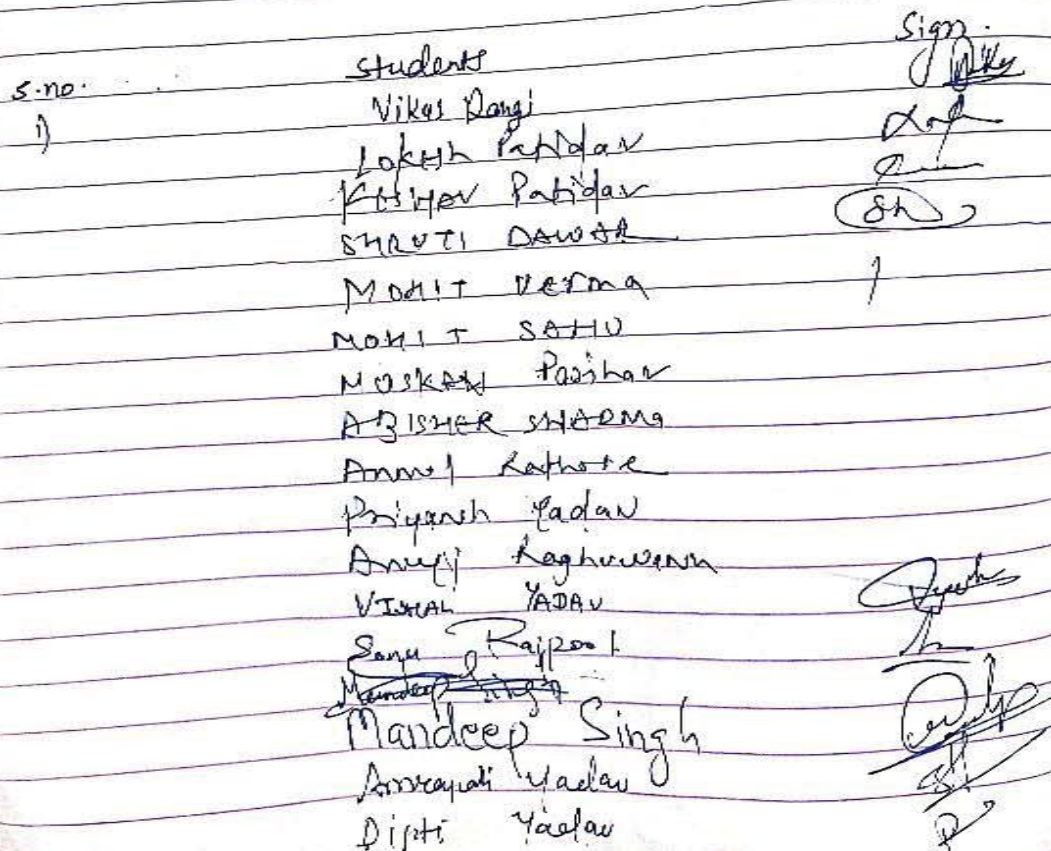 s.no. Students Sign.
1) Vikas Dangi
Lokesh Patidar
Patidar
SHRUTI DAWAR Sh
MOHIT Verma
MOHIT SAHU
MUSKAN Parihar
ABISHEK SHARMA
Anmol Rathore
Priyansh Yadav
Anuj Raghuwansh
VISHAL YADAV
Sonu Rajpoot
Mandeep Singh
Mandeep Singh
Amrapali Yadav
Dipti Yadav